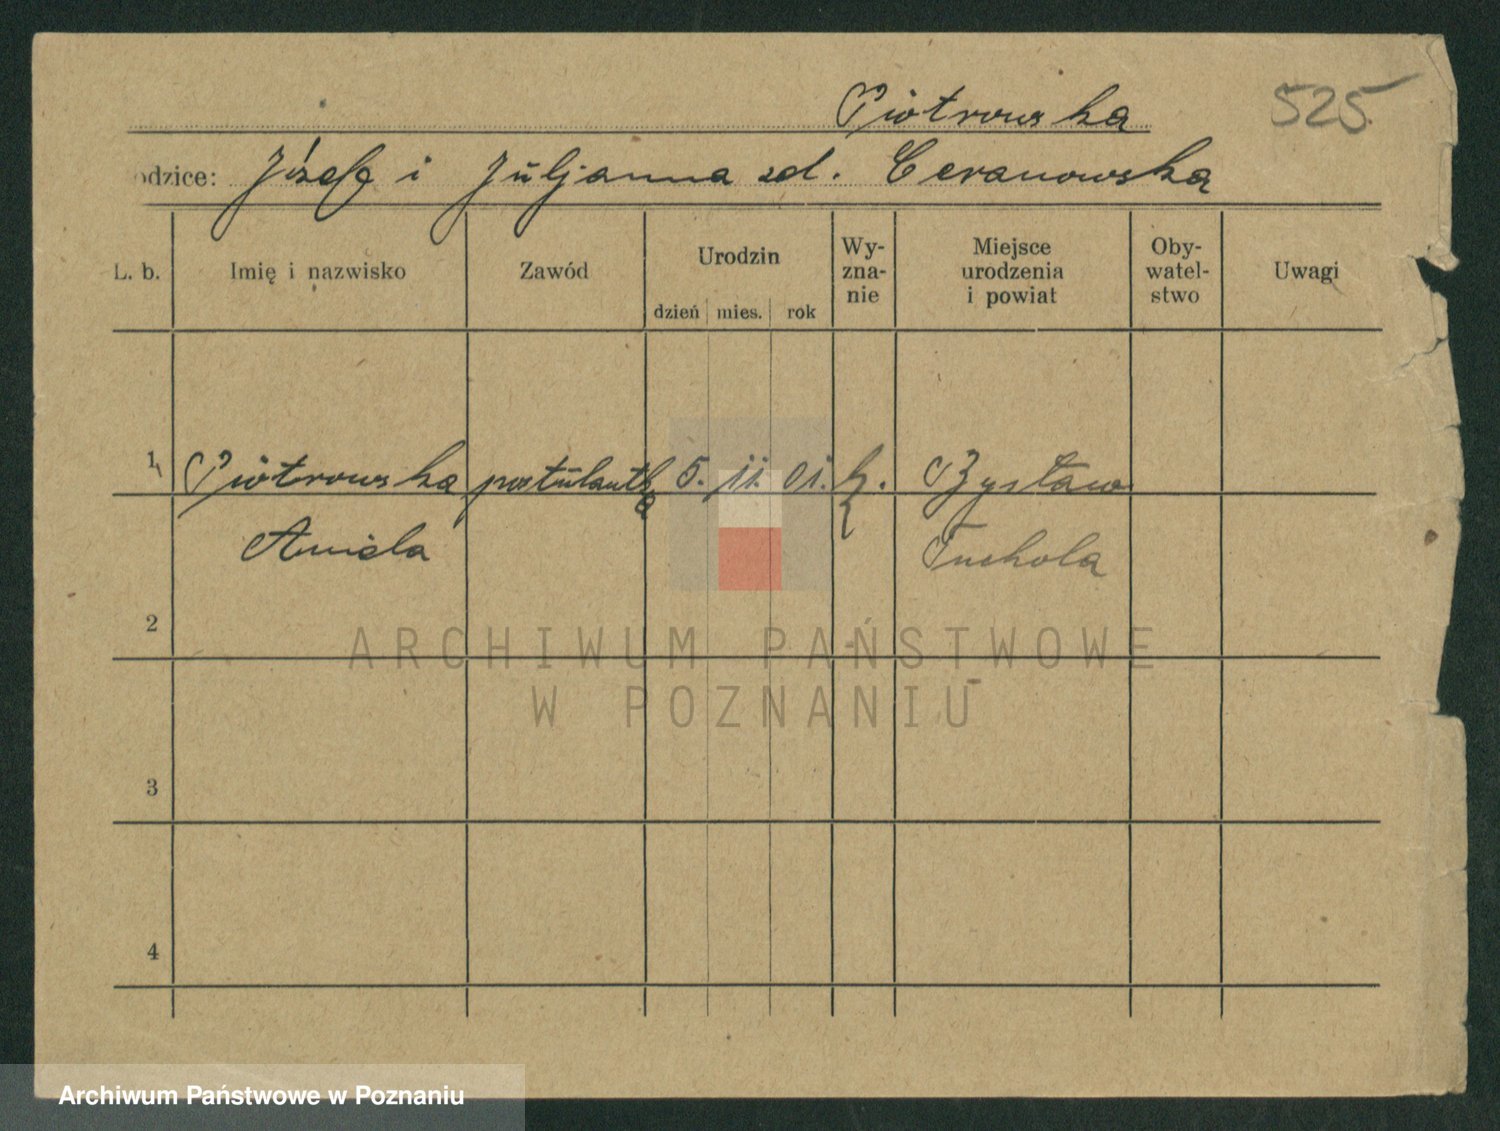 Piotrowska 525.
odzice: Józef i Juljanna zd. Ceranowska
L. b. Imię i nazwisko Zawód Urodzin dzień mies. rok Wy-zna-nie Miejsce urodzenia i powiat Oby-watel-stwo Uwagi
1 Piotrowska postulantka 5. 11. 01. k. Bysław
Aniela Tuchola
2
ARCHIWUM PAŃSTWOWE
W POZNANIU
3
4
Archiwum Państwowe w Poznaniu